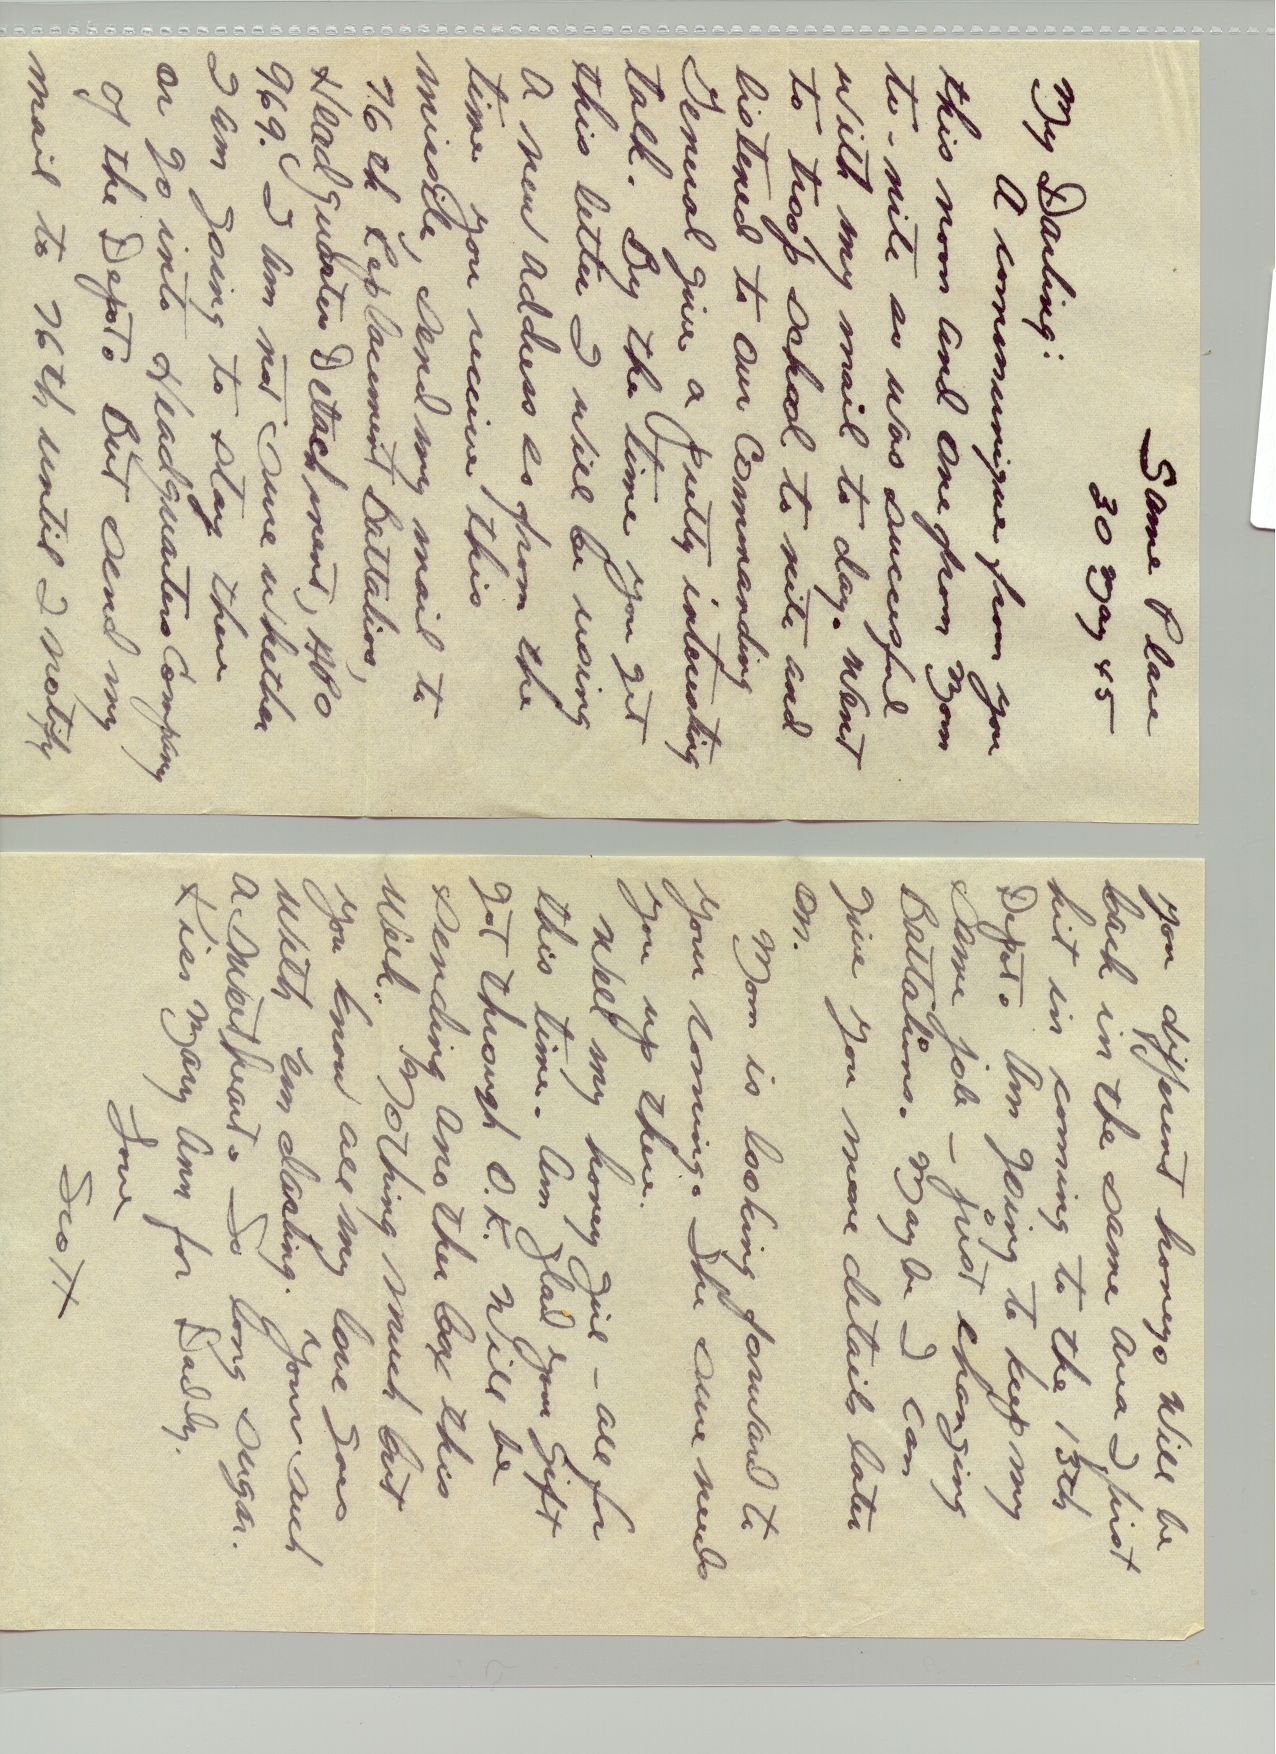 Same Place
30 May 45
My Darling:
A communique from you
this noon and one from Mom
to-nite so was successful
with my mail to day. Went
to troop school to nite and
listened to our Commanding
General give a pretty interesting
talk. By the time you get
this letter I will be using
a new address so from the
time you receive this
missile, send my mail to
76th Replacement Battalion,
Headquarters Detachment, APO
969. I am not sure whether
I am going to stay there
or go into Headquarters Company
of the Depot. But send my
mail to 76th until I notify
you different honey. Will be
back in the same area I first
hit in coming to the 13th
Depot. Am going to keep my
same job - just changing
Battalions. Maybe I can
give you more details later
on.
Mom is looking forward to
your coming. She sure needs
you up there.
Well my honey Girl - all for
this time. Am glad your gift
got through O.K. Will be
sending another box this
week. Nothing much but
you know all my love goes
with em darling. You're such
a sweetheart. So long sugar.
Kiss Mary Ann for Daddy.
Love
Scott